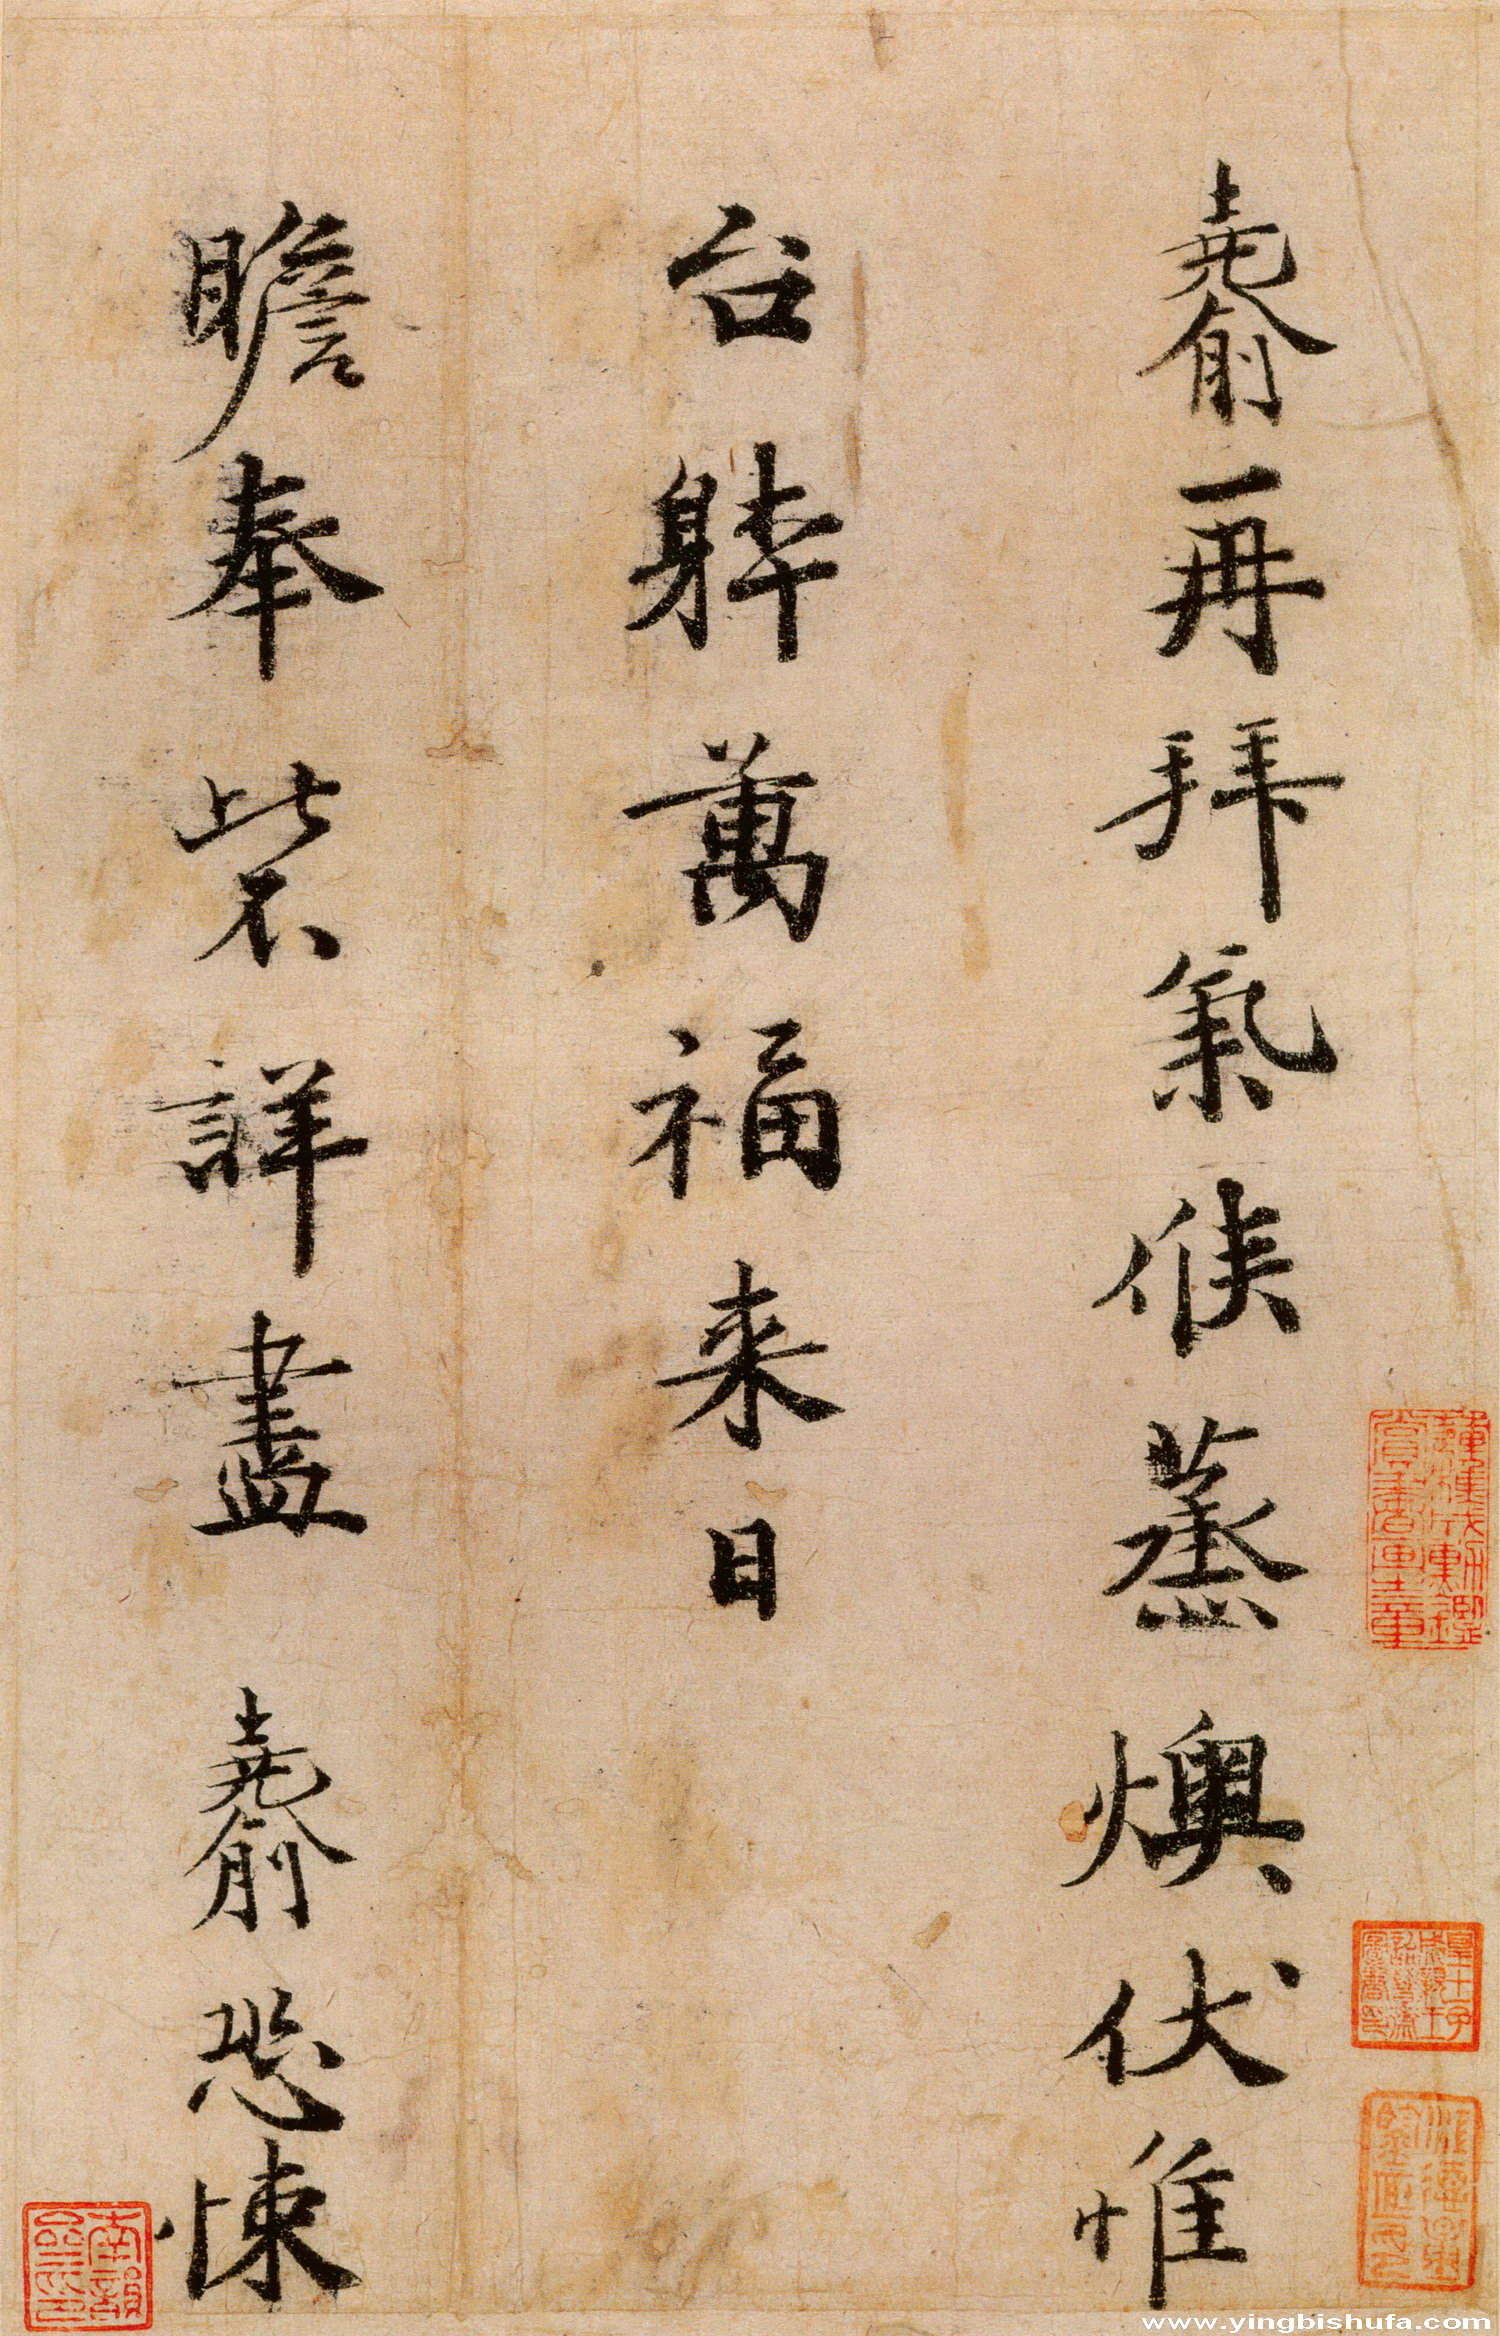 堯俞再拜氣候蒸燠伏惟
台躰萬福来日
瞻奉此不詳盡 堯俞恐悚
www.yingbishufa.com